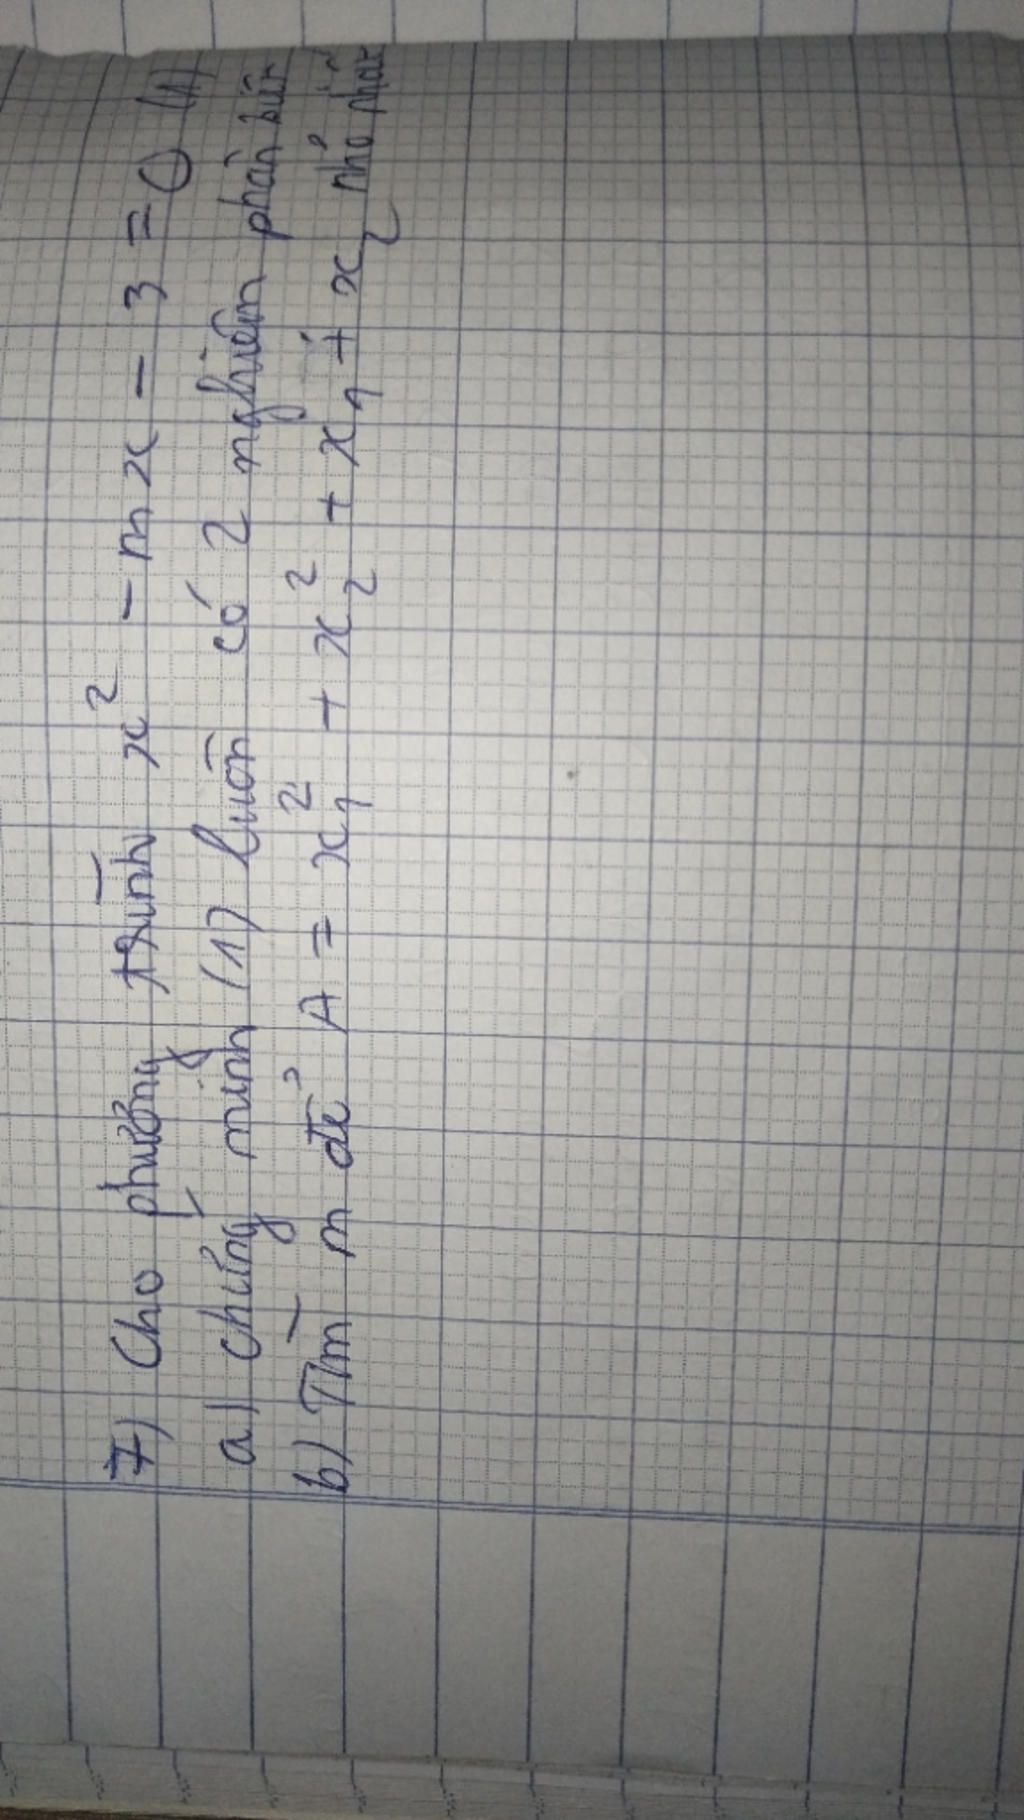 7) Cho phương trình x² - mx - 3 = 0 (1)
a) chứng minh (1) luôn có 2 nghiệm phân biệt
b) Tìm m để A = x₁² + x₂² + x₁ + x₂ nhỏ nhất